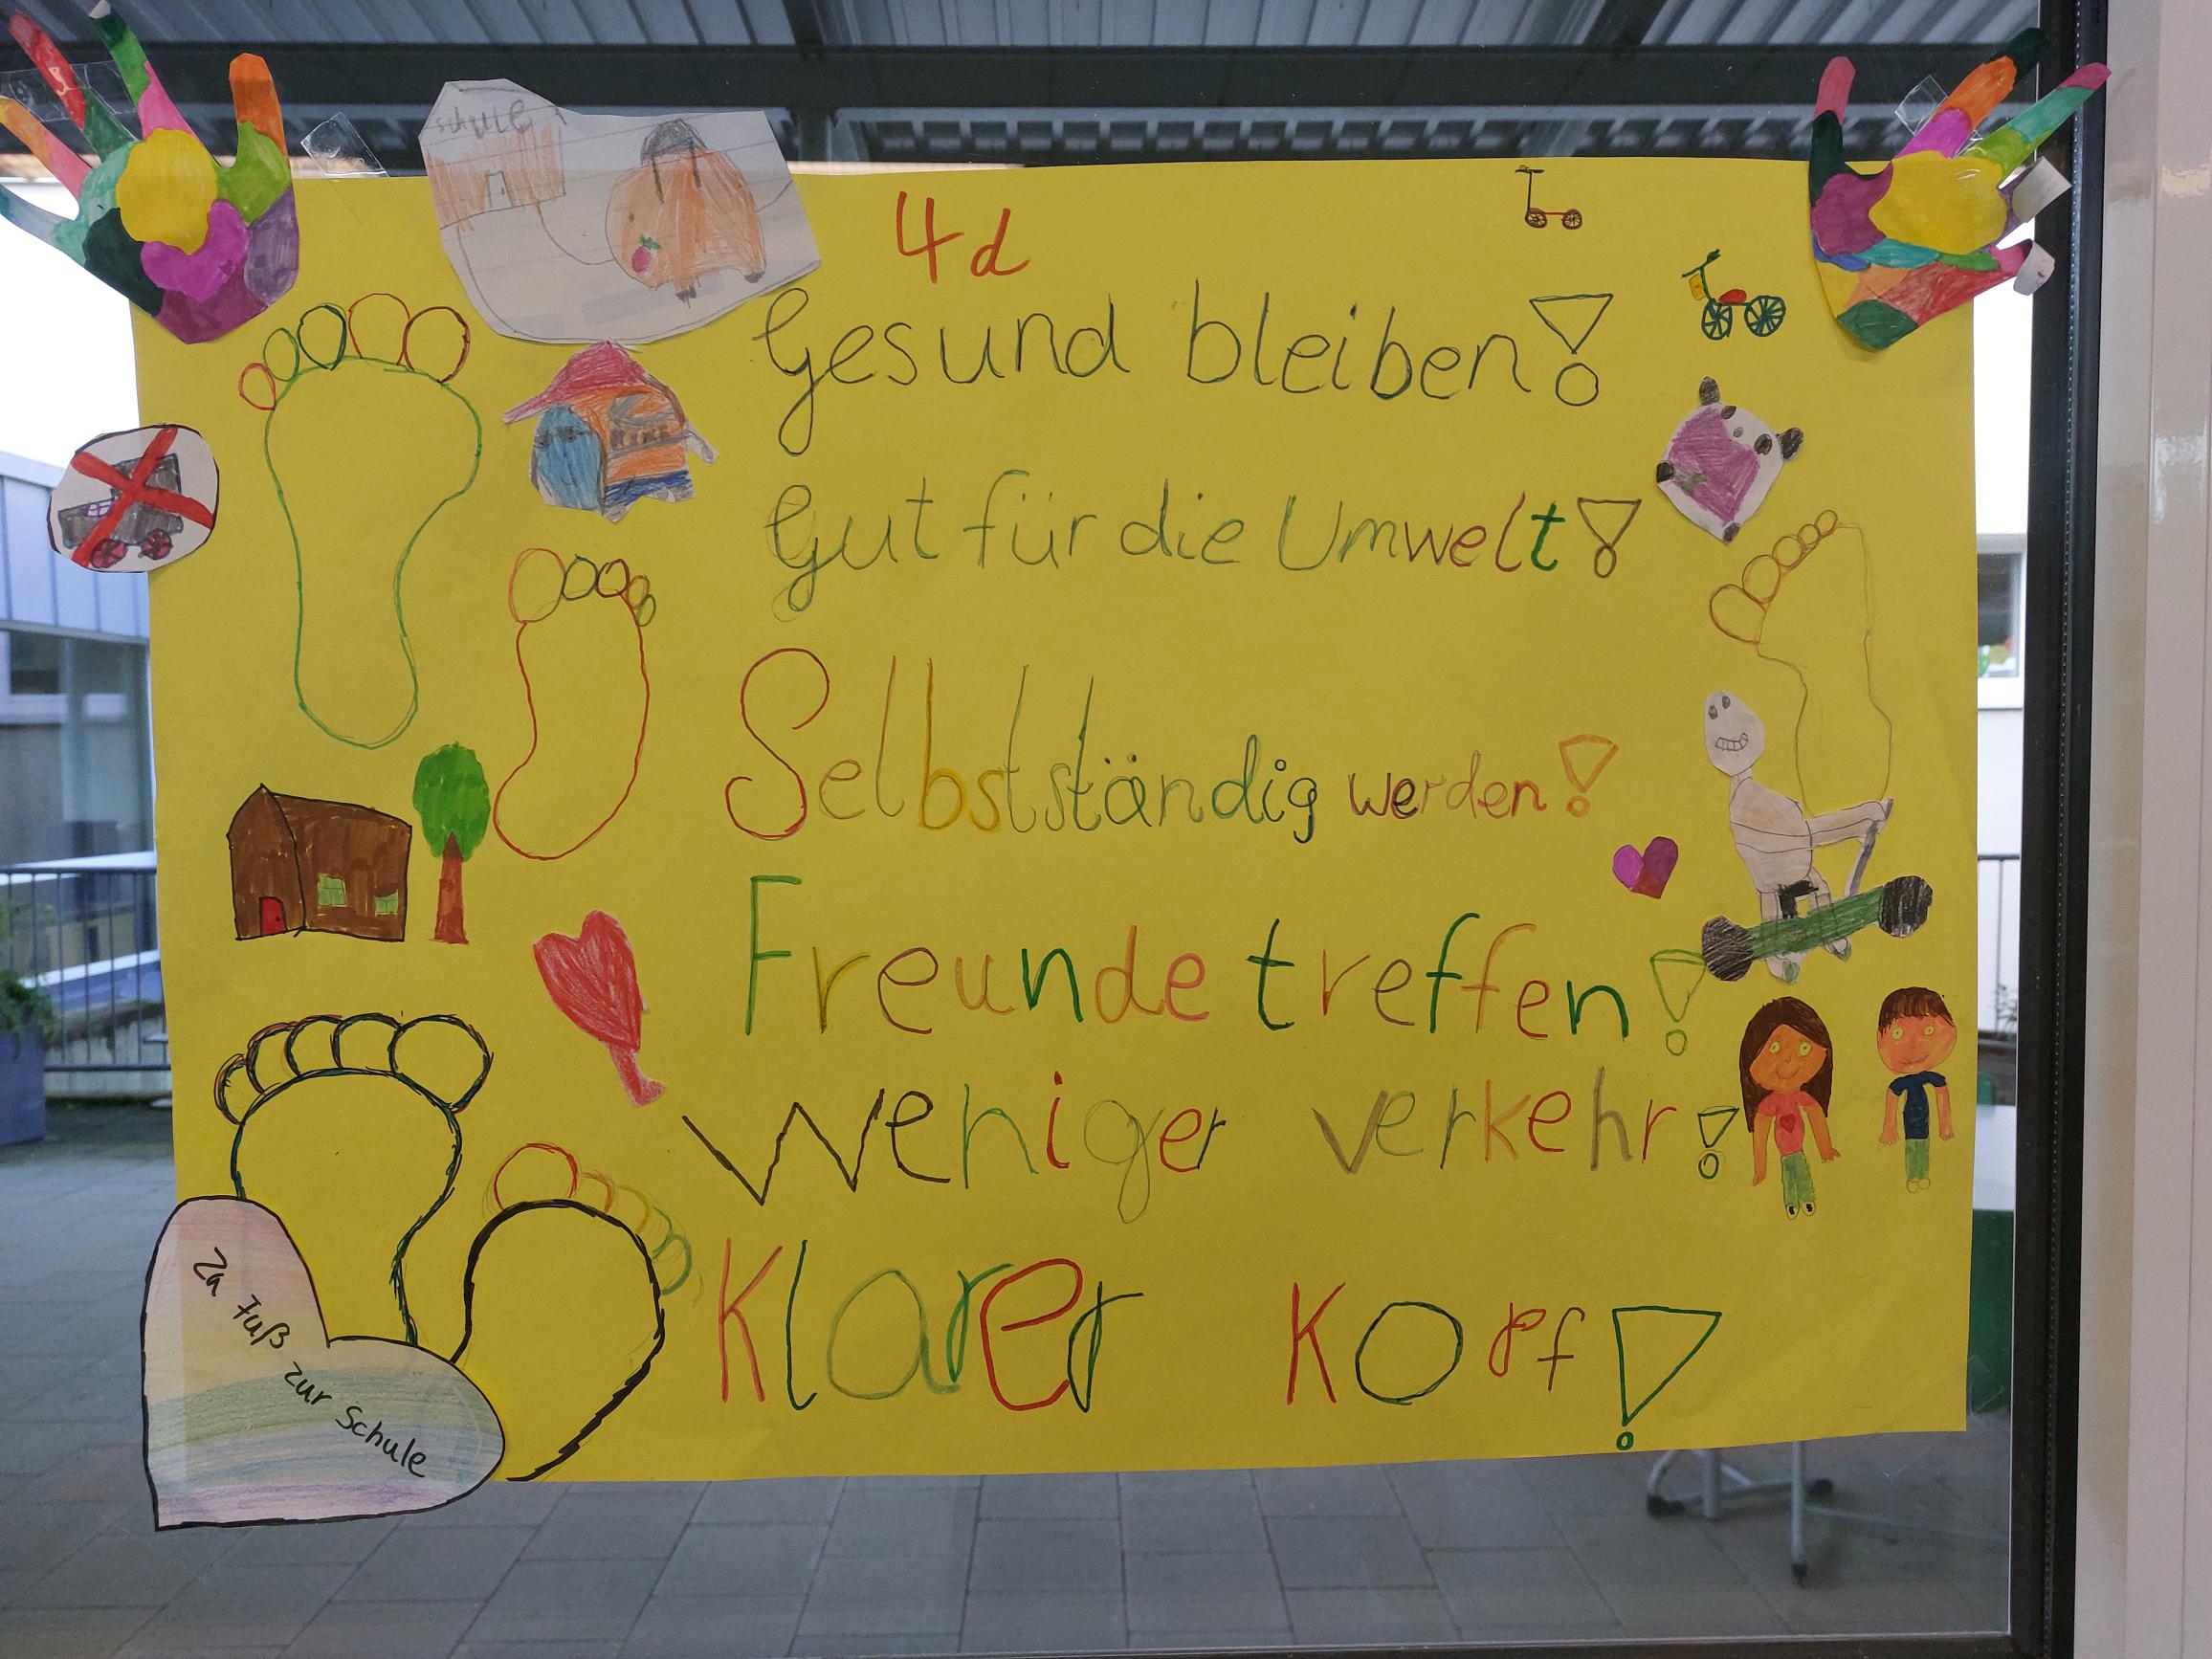 schule
4d
Gesund bleiben!
NIKE
Gut für die Umwelt!
Selbstständig werden!
Freunde treffen!
weniger verkehr!
Klarer Kopf!
Zu Fuß zur Schule